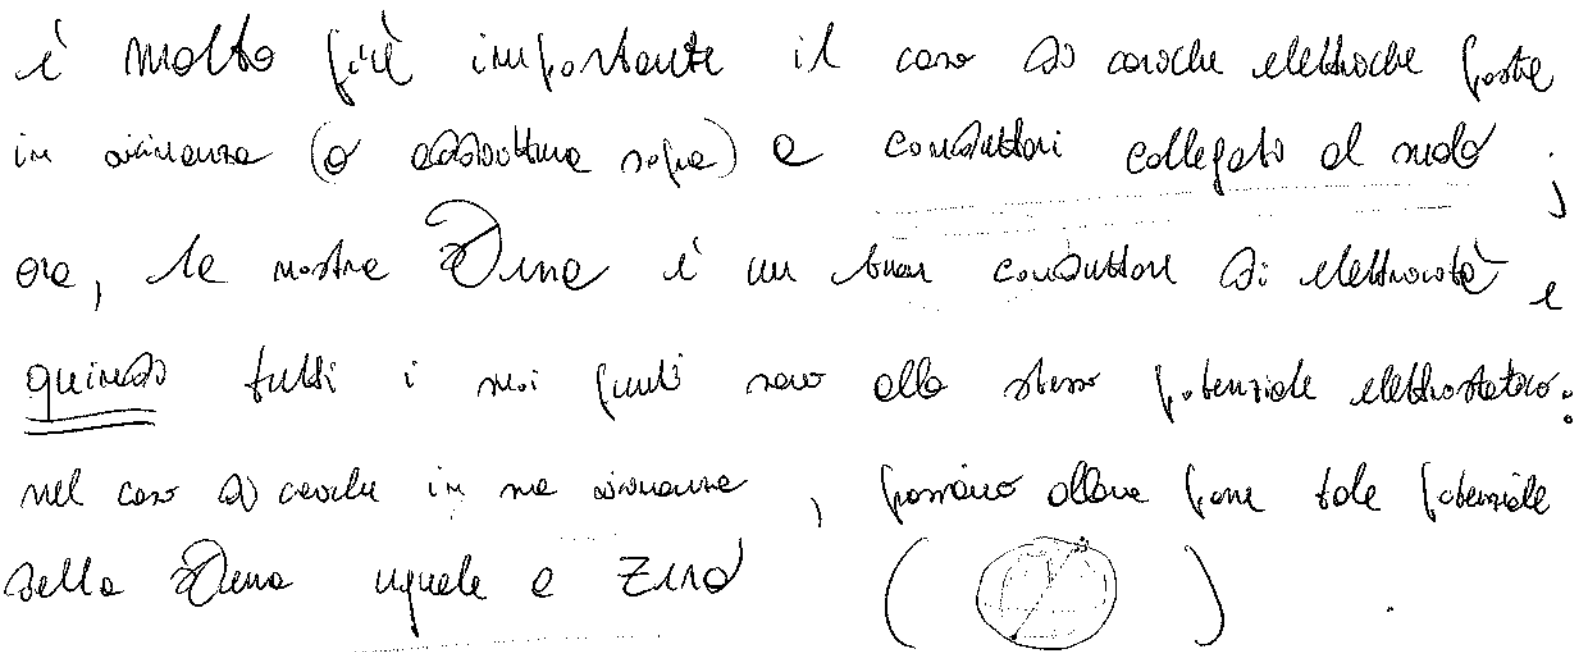 è molto più importante il caso di cariche elettriche poste
in vicinanza (o addirittura sopra) a conduttori collegati al suolo ;
ora, la nostra Terra è un buon conduttore di elettricità e
quindi tutti i suoi punti sono allo stesso potenziale elettrostatico:
nel caso di cariche in sua vicinanza , possiamo allora porre tale potenziale
della Terra uguale a zero ( )